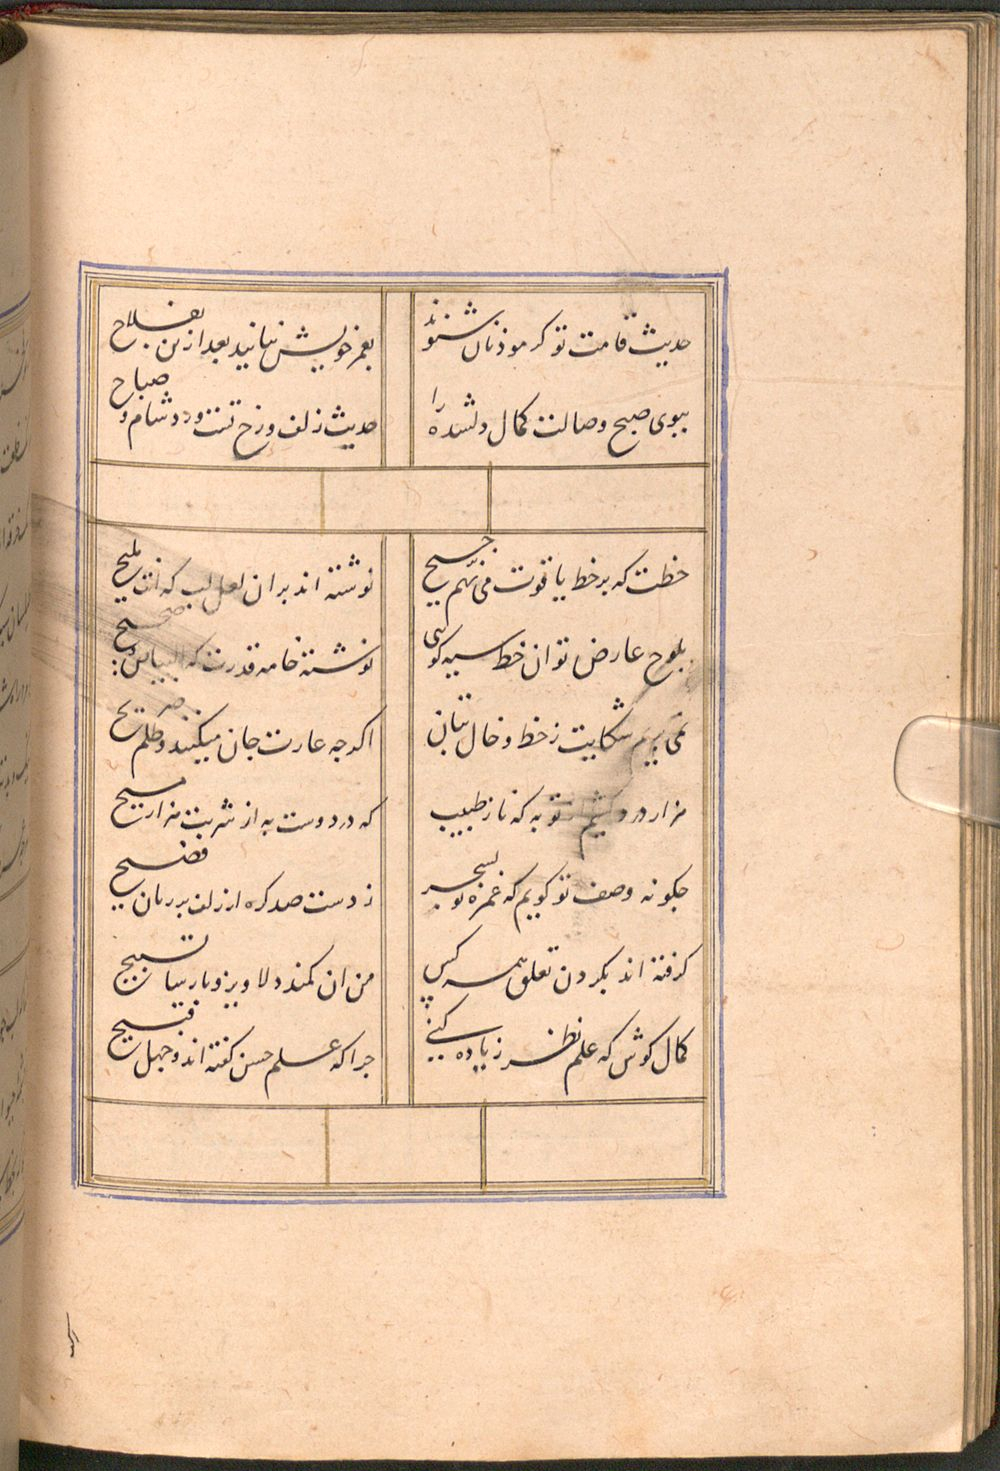 حدیث قامت تو کر موذنان شنوند
بعمر خویش نیایند بعد ازین بفلاح
ببوی صبح وصالت کمال دلشده را
حدیث زلف و رخ تست ورد شام و صباح
خطت که بر خط یاقوت می نهم ترجیح
نوشته اند بران لعل لب که انت ملیح
بلوح عارض تو ان خط سیه کوئی
نوشته خامه قدرت که البیاض صحیح
نمی بریم شکایت ز خط و خال بتان
اکرجه غارت جان میکنند و ظلم صریح
هزار درد کشیم از تو به که ناز طبیب
که درد دوست به از شربت هزار مسیح
جکونه وصف تو کویم که غمزه تو بسحر
ز دست صد کره از زلف بر زبان فصیح
کرفته اند بکردن تعلق همه کس
من ان کمند دلاویز و پارسا تسبیح
کمال کوش که علم نظر زیاده کنی
جرا که علم حسن کفته اند و جهل قبیح